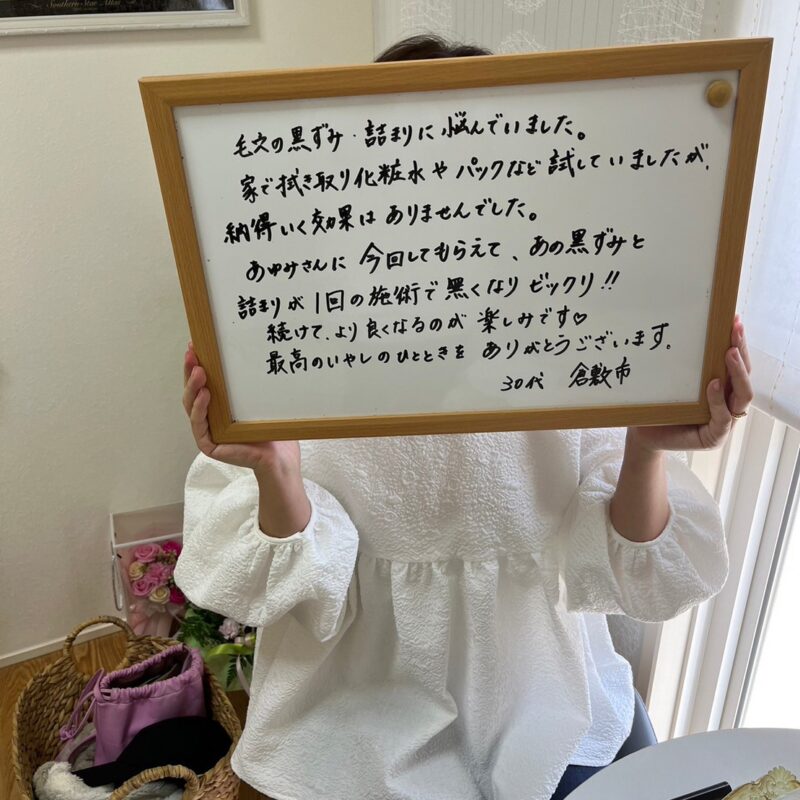 Southern Star Atlas
毛穴の黒ずみ・詰まりに悩んでいました。
家で拭き取り化粧水やパックなど試していましたが、
納得いく効果はありませんでした。
あゆみさんに今回してもらえて、あの黒ずみと
詰まりが1回の施術で無くなりビックリ!!
続けて、より良くなるのが楽しみです♡
最高のいやしのひとときをありがとうございます。
30代 倉敷市